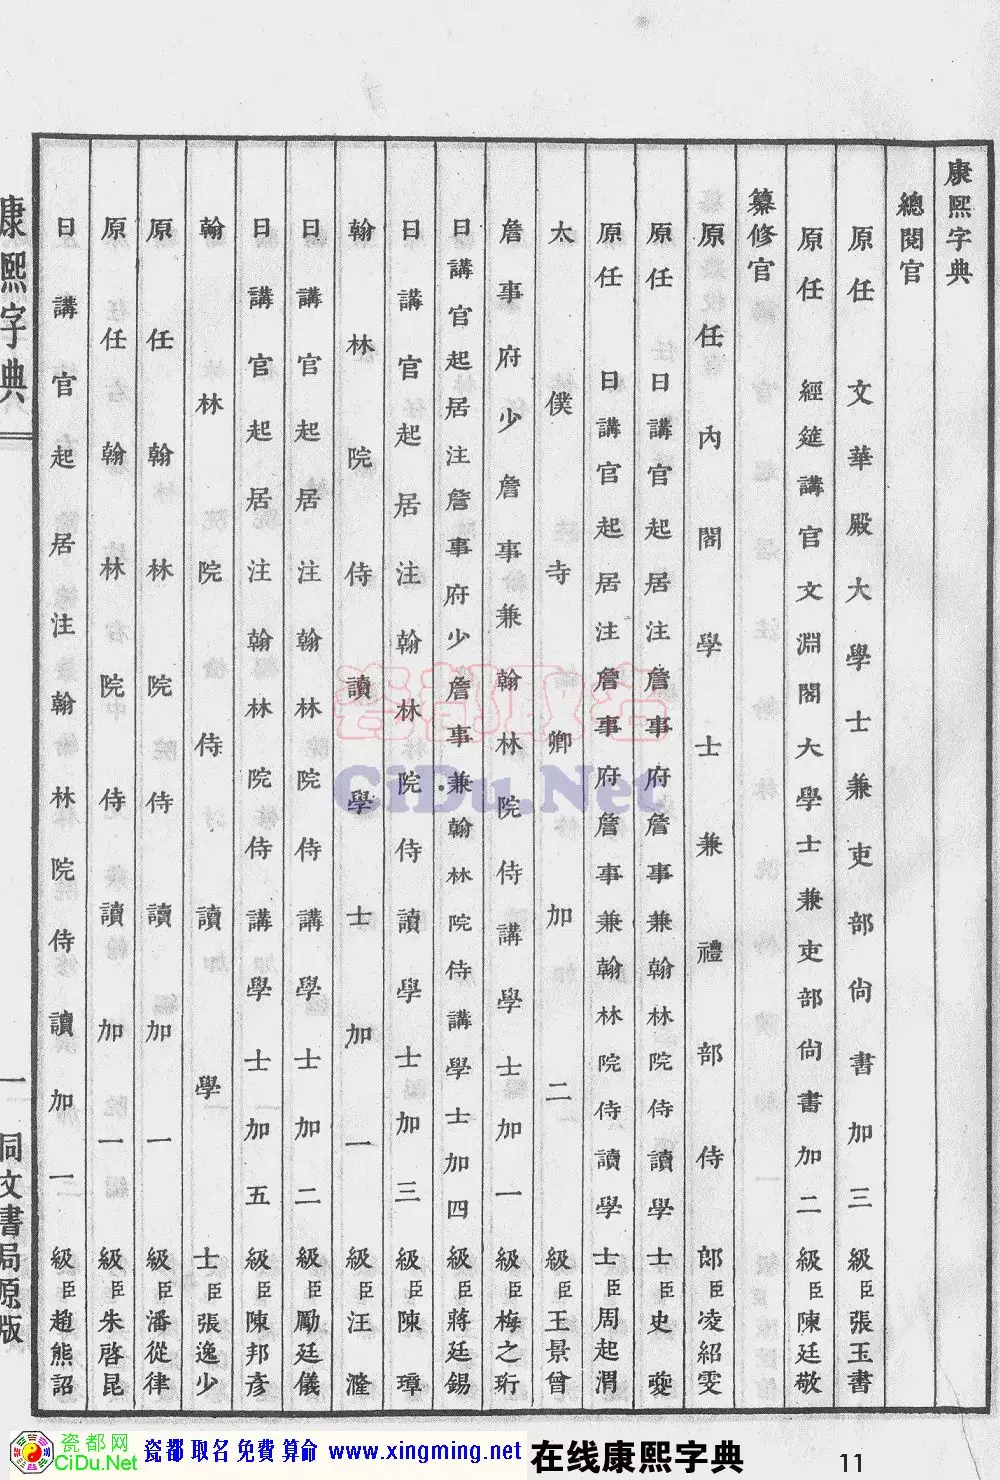 康熙字典
總閱官
原任文華殿大學士兼吏部尙書加三級臣張玉書
原任經筵講官文淵閣大學士兼吏部尙書加二級臣陳廷敬
纂修官
原任內閣學士兼禮部侍郎臣凌紹雯
原任日講官起居注詹事府詹事兼翰林院侍讀學士臣史夔
原任日講官起居注詹事府詹事兼翰林院侍讀學士臣周起渭
太僕寺卿加二級臣王景曾
詹事府少詹事兼翰林院侍講學士加一級臣梅之珩
日講官起居注詹事府少詹事兼翰林院侍講學士加四級臣蔣廷錫
日講官起居注翰林院侍讀學士加三級臣陳璋
翰林院侍讀學士加一級臣汪漋
日講官起居注翰林院侍講學士加二級臣勵廷儀
日講官起居注翰林院侍講學士加五級臣陳邦彥
翰林院侍讀學士臣張逸少
原任翰林院侍讀加一級臣潘從律
原任翰林院侍讀加一級臣朱啓昆
日講官起居注翰林院侍讀加一級臣趙熊詔
康熙字典
一
同文書局原版
瓷都取名
CiDu.Net
瓷都网
CiDu.Net
瓷都取名免費算命 www.xingming.net
在线康熙字典
11